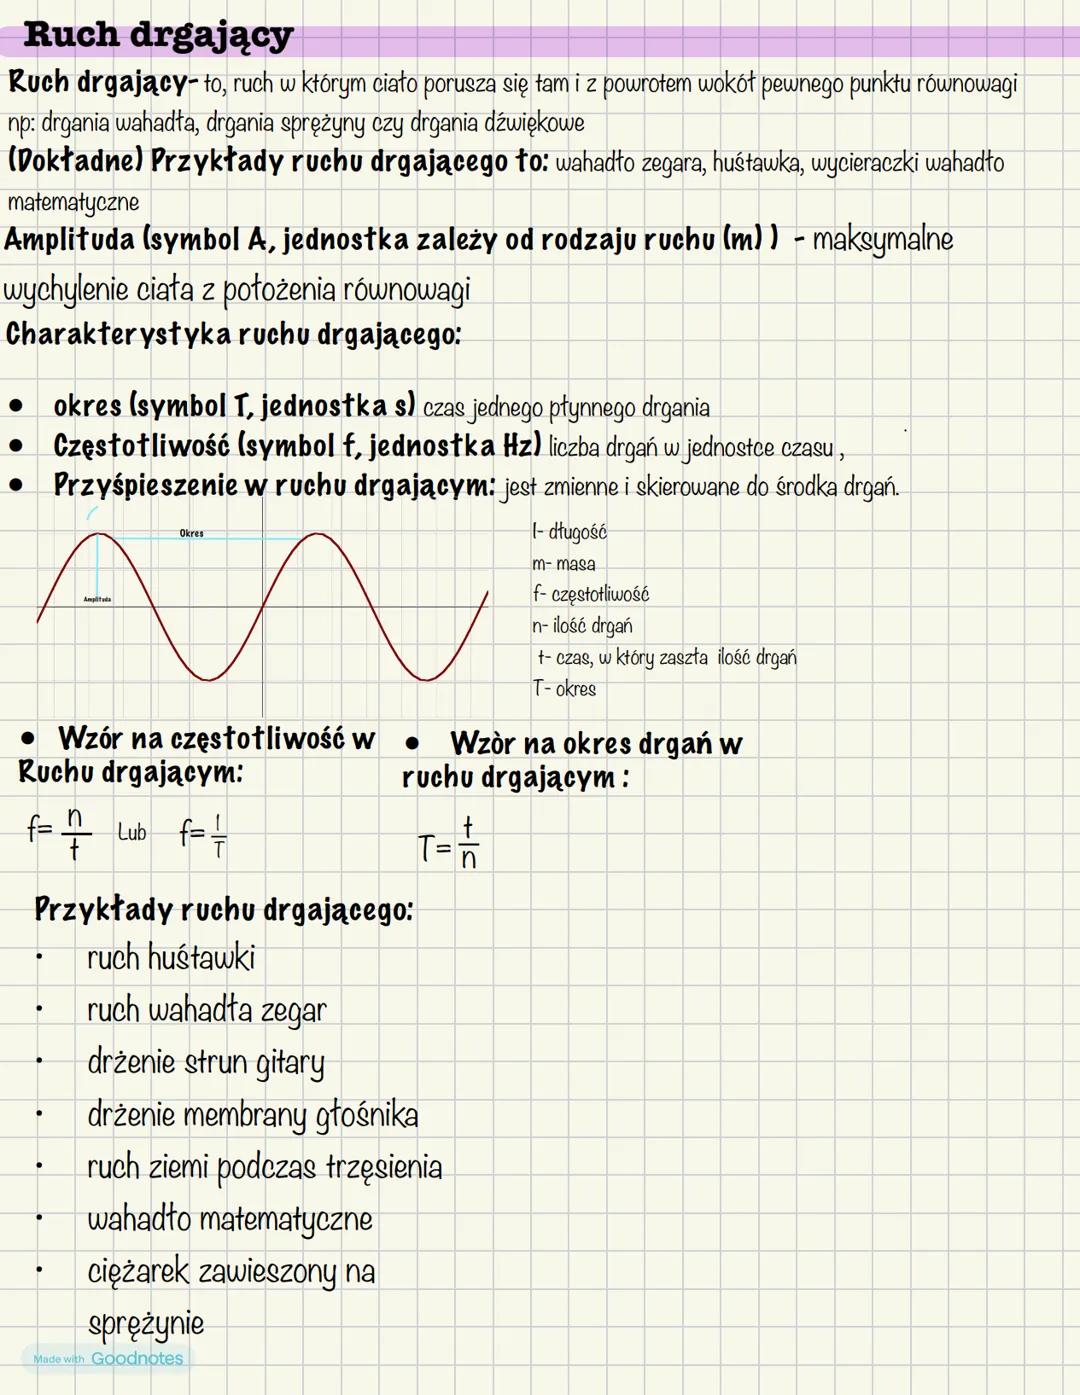 Ruch drgający
Ruch drgający- to, ruch w którym ciało porusza się tam i z powrotem wokół pewnego punktu równowagi
np: drgania wahadła, drgania sprężyny czy drgania dźwiękowe
(Dokładne) Przykłady ruchu drgającego to: wahadło zegara, huśtawka, wycieraczki wahadło
matematyczne
Amplituda (symbol A, jednostka zależy od rodzaju ruchu (m) ) - maksymalne
wychylenie ciała z położenia równowagi
Charakterystyka ruchu drgającego:
• okres (symbol T, jednostka s) czas jednego płynnego drgania
• Częstotliwość (symbol f, jednostka Hz) liczba drgań w jednostce czasu ,
• Przyśpieszenie w ruchu drgającym: jest zmienne i skierowane do środka drgań.
Okres
Amplituda
l- długość
m- masa
f- częstotliwość
n- ilość drgań
t- czas, w który zaszła ilość drgań
T- okres
• Wzór na częstotliwość w
Ruchu drgającym:
f= n/t Lub f= 1/T
• Wzòr na okres drgań w
ruchu drgającym :
T= t/n
Przykłady ruchu drgającego:
· ruch huśtawki
· ruch wahadła zegar
· drżenie strun gitary
· drżenie membrany głośnika
· ruch ziemi podczas trzęsienia
· wahadło matematyczne
· ciężarek zawieszony na
sprężynie
Made with Goodnotes